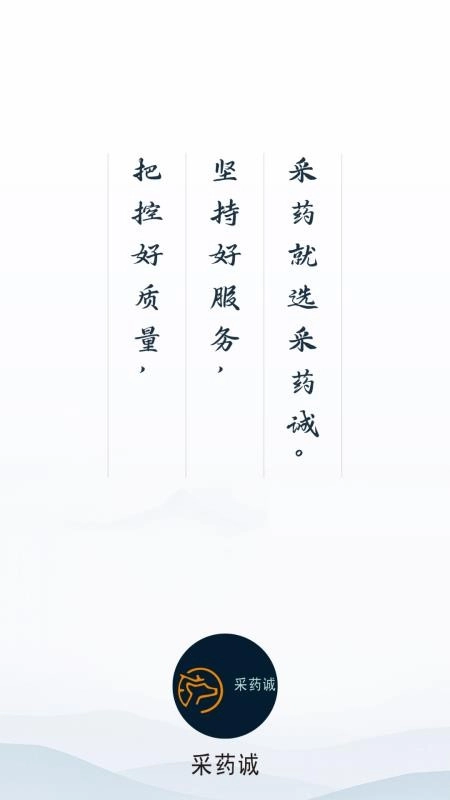 把控好质量，
坚持好服务，
采药就选采药诚。
采药诚
采药诚